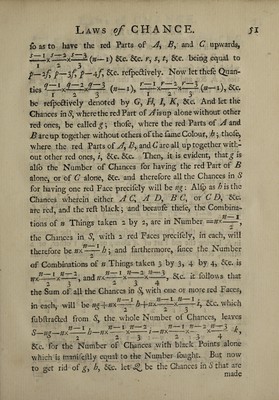 LAWS of CHANCE. 51
so as to have the red Parts of A, B, and C upwards,
t−1/1 × t−2/2 × t−3/3 (n−1) &c. &c. r, s, t, &c. being equal to
p−2f, p−3f, p−4f, &c. respectively. Now let these Quan-
ties q−1/1 × q−2/2 × q−3/3 (n−1), r−1/1 × r−2/2 × r−3/3 (n−1), &c.
be respectively denoted by G, H, I, K, &c. And let the
Chances in S, where the red Part of A is up alone without other
red ones, be called g; those, where the red Parts of A and
B are up together without others of the same Colour, h; those,
where the red Parts of A, B, and C are all up together with-
out other red ones, i, &c. &c. Then, it is evident, that g is
also the Number of Chances for having the red Part of B
alone, or of C alone, &c. and therefore all the Chances in S
for having one red Face precisely will be ng: Also as h is the
Chances wherein either A C, A D, B C, or C D, &c.
are red, and the rest black; and because these, the Combina-
tions of n Things taken 2 by 2, are in Number =n×n−1/2,
the Chances in S, with 2 red Faces precisely, in each, will
therefore be n×n−1/2 h; and farthermore, since the Number
of Combinations of n Things taken 3 by 3, 4 by 4, &c. is
n×n−1/2×n−2/3, and n×n−1/2×n−2/3×n−3/4, &c. it follows that
the Sum of all the Chances in S, with one or more red Faces,
in each, will be ng+n×n−1/2 h+n×n−1/2×n−2/3 i, &c. which
substracted from S, the whole Number of Chances, leaves
S−ng−n×n−1/2 h−n×n−1/2×n−2/3 i−n×n−1/2×n−2/3×n−3/4 k,
&c. for the Number of Chances with black Points alone
which is manifestly equal to the Number sought. But now
to get rid of g, h, &c. let Q be the Chances in S that are
made